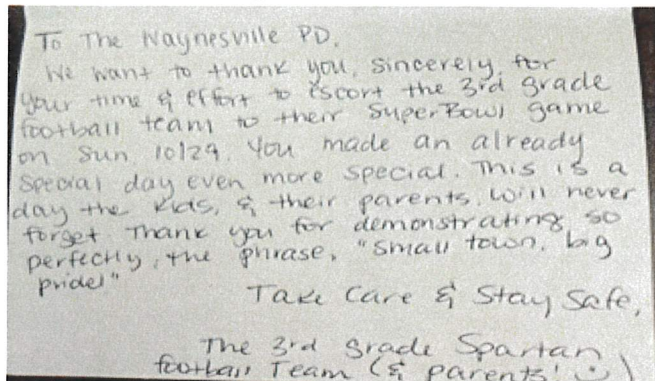 To The Waynesville PD,
We want to thank you, sincerely, for
your time & effort to escort the 3rd grade
football team to their SuperBowl game
on Sun 10/29. You made an already
special day even more special. This is a
day the kids, & their parents, will never
forget. Thank you for demonstrating so
perfectly, the phrase, "small town, big
pride!"
Take Care & Stay Safe,
The 3rd grade Spartan
football Team (& parents! :)